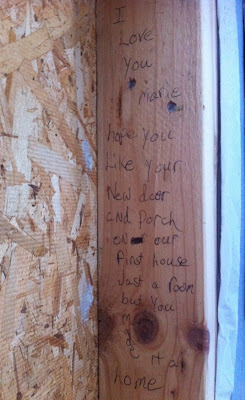 I
Love
you
Marie
hope you
Like your
New door
and Porch
on our
First house
Just a room
but you
made it a
home